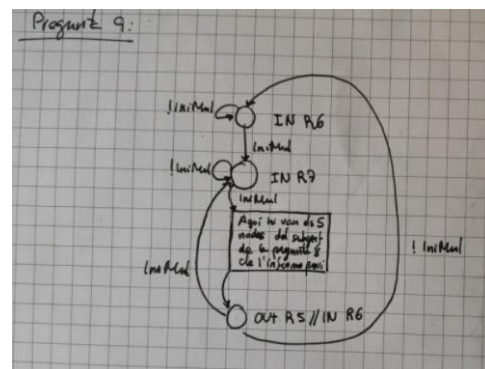 Pregunta 9:
! IniMul
IN R6
IniMul
! IniMul
IN R7
IniMul
Aquí hi van els 5
nodes del
de la pregunta 8
de l'informe previ
IniMul
! IniMul
OUT R5 // IN R6